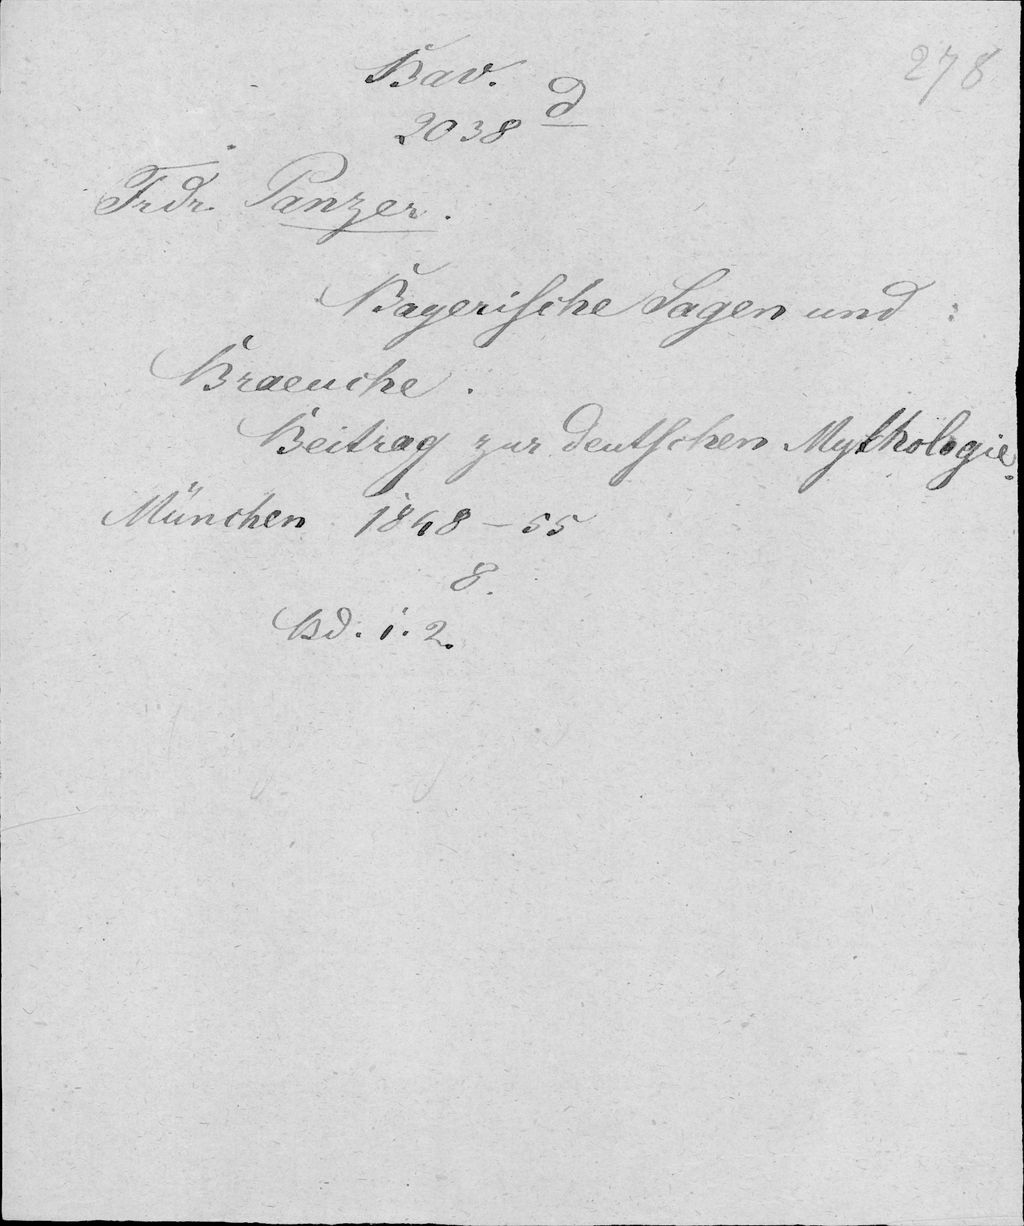 278
Bav.
2038 d
Frdr. Panzer.
Bayerische Sagen und
Braeuche.
Beitrag zur deutschen Mythologie.
München 1848-55
8.
Bd. 1. 2.